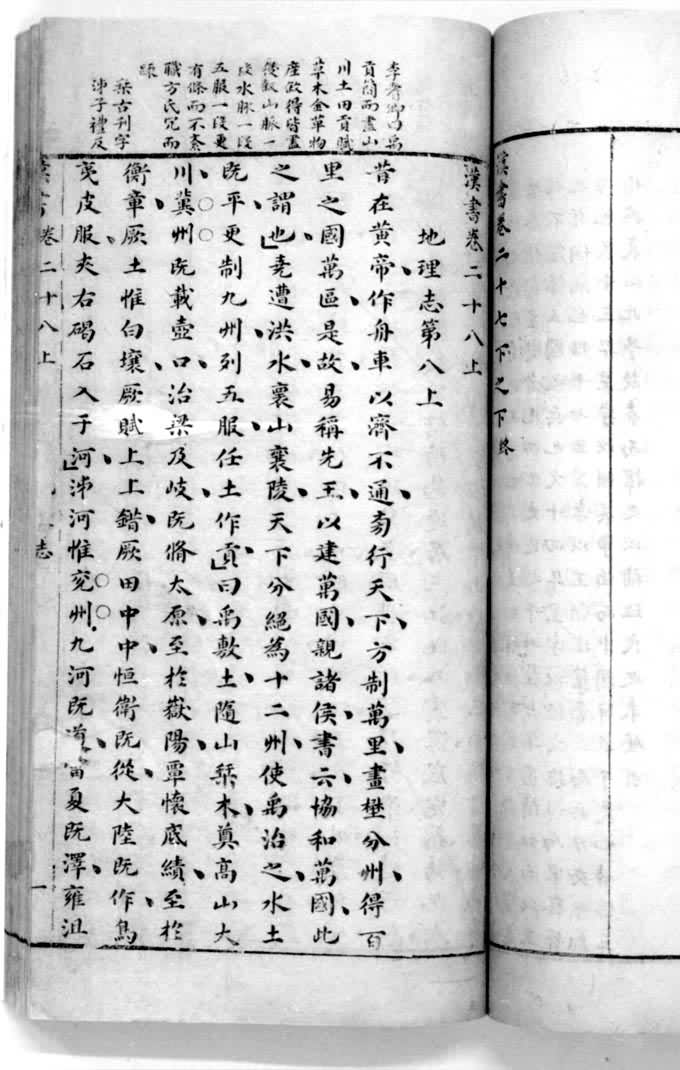 漢書卷二十七下之下終
漢書卷二十八上
地理志第八上
昔在黃帝作舟車以濟不通旁行天下方制萬里畫壄分州得百
里之國萬區是故易稱先王以建萬國親諸侯書云協和萬國此
之謂也堯遭洪水襄山襄陵天下分絕為十二州使禹治之水土
既平更制九州列五服任土作貢曰禹敷土隨山栞木奠高山大
川冀州既載壺口治梁及岐既脩太原至於嶽陽覃懷厎績至於
衡章厥土惟白壤厥賦上上錯厥田中中恒衛既從大陸既作鳥
夷皮服夾右碣石入于河泲河惟兗州九河既道雷夏既澤雍沮
李耆卿曰禹
貢簡而盡山
川土田貢賦
草木金革物
產敘得皆盡
後敘山脈一
段水脈一段
五服一段更
有條而不紊
職方氏冗而
栞古刊字
泲子禮反
漢書卷二十八上 志 一